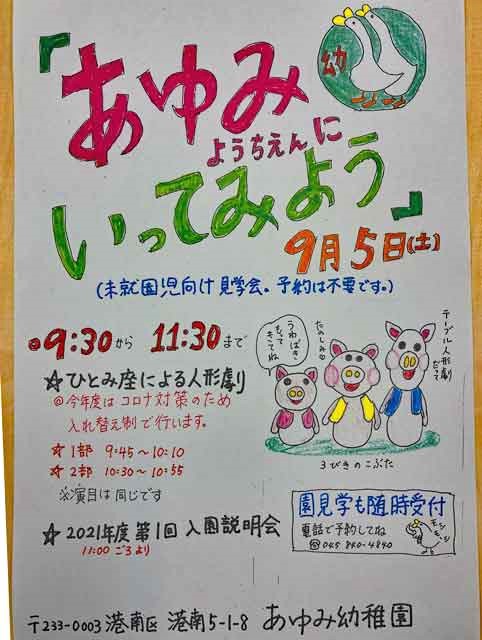 幼
「あゆみ
ようちえんに
いってみよう」
9月5日(土)
(未就園児向け見学会。予約は不要です。)
9:30から 11:30まで
☆ひとみ座による人形劇
@今年度はコロナ対策のため
入れ替え制で行います。
☆1部 9:45〜10:10
☆2部 10:30〜10:55
※演目は同じです
うわばき
もって
きてね
たのしみ
テーブル人形劇
だって
3びきのこぶた
☆2021年度 第1回 入園説明会
11:00ごろより
園見学も随時受付
電話で予約してね
☎045 840-4840
モシ
モシ
〒233-0003 港南区 港南5-1-8 あゆみ幼稚園